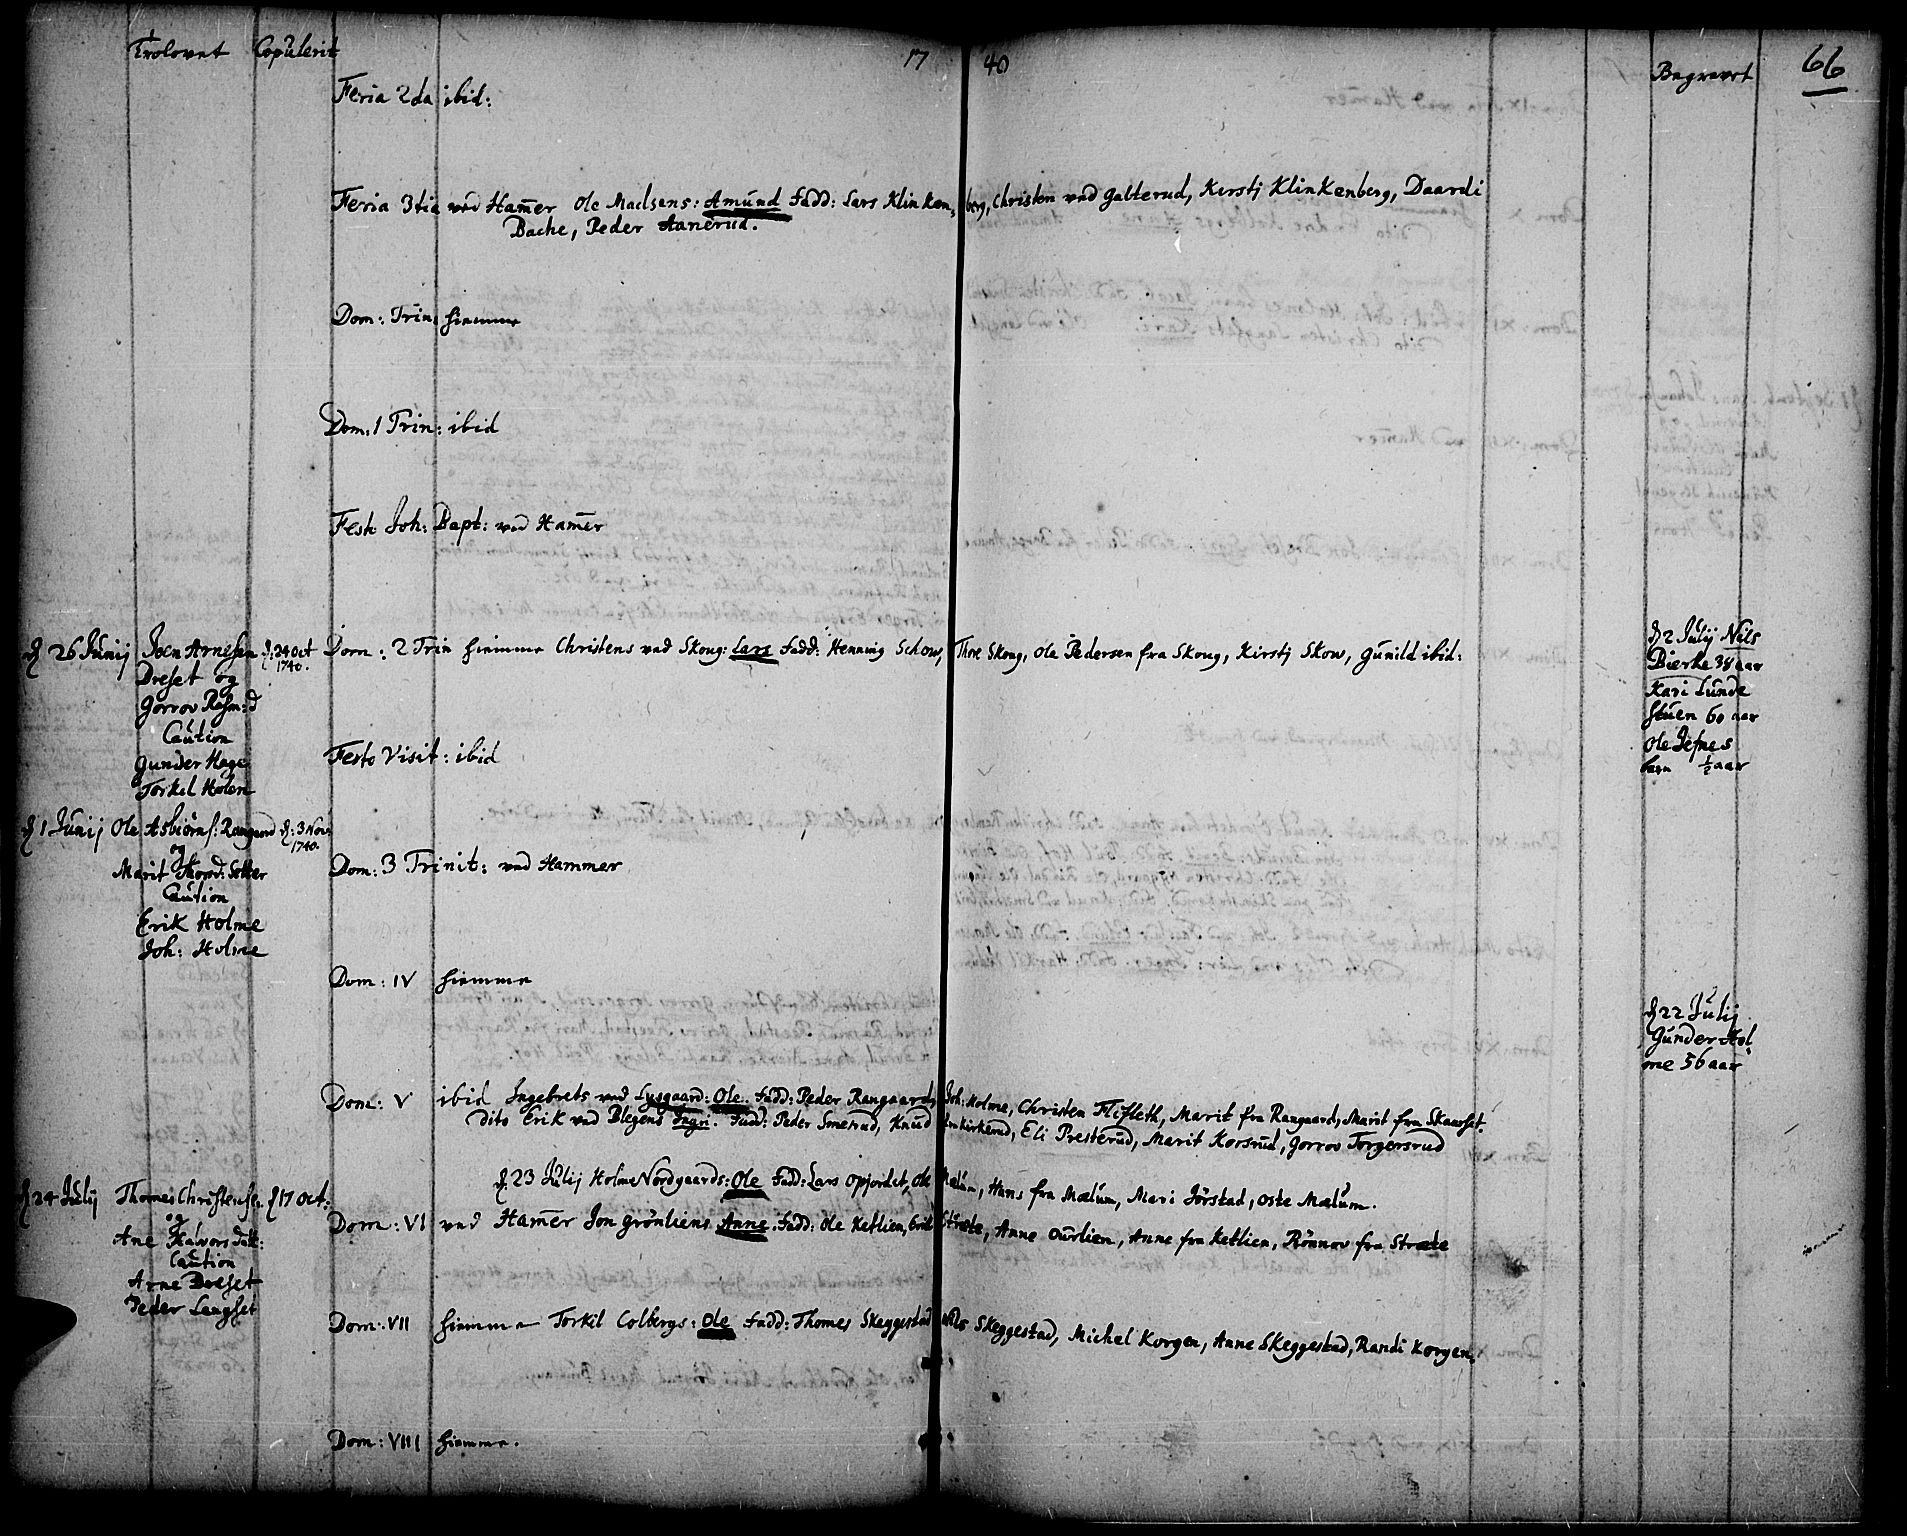 Trolovet Copulerit 17 40 Begravet 66
Feria 2da ibid:
Feria 3tia ved Ham̄er Ole Madsens: Amund Fadd: Lars Klinken, berg, Christen ved Galterud, Kerstj Klinkenberg, Daardi
Bache, Peder Aanerud.
Dom: Trin hiemme
Dom: 1 Trin: ibid
Fest: Joh: Bapt: ved Ham̄er
Dom: 2 Trin hiemme Christens ved Skoug: Lars Fadd: Henning Schow, Thore Skoug, Ole Pedersen fra Skoug, Kirstj Skow, Gunild ibid:
Festo Visit: ibid
Dom: 3 Trinit: ved Hammer
Dom: IV hiemme
Dom: V ibid Ingebrets ved Lysgaard: Ole. Fadd: Peder Rangaard, Joh: Holme, Christen Flifleth, Marit fra Rangaard, Marit fra Skaarset.
Dito Erik ved Blegens Ingri. Fadd: Peder Smerud, Knud Enkirkerud, Eli Presterud, Marit Korsrud, Jorrov Torgersrud
d 23 Julij Holme Nordgaards: Ole Fadd: Lars Opjordet, Ole Mælum, Hans fra Mælum, Mari Jörstad, Oste Mælum.
Dom: VI ved Ham̄er Jon Grönliens Anne. Fadd: Ole Ketlien, Erik Stræte, Anne Ourlien, Anne fra Ketlien, Rönnov fra Stræte
Dom: VII hiemme Torkil Colbergs: Ole Fadd: Thomes Skeggestad Nils Skeggestad, Michel Korgen, Anne Skeggestad, Randi Korgen.
Dom: VIII hiemme.
d 26 Junij Joen Arnesen d: 24 Oct
1740.
Dreset og
Gorrov Rasm:d
Caution
Gunder Hage
Torkel Holen
d 1 Junij Ole Asbiörns: Rangaard d: 3 Nov.
1740.
og
Marit Thord: Setter
Caution
Erik Holme
Joh: Holme
d 24 Julij Thomes Christensen d 17 Oct:
og
Ane Halvors datt:
Caution
Arne Dreset
Peder Langset
d 2 Julij Nils
Bierke 38 aar
Kari Lunde
stuen 60 aar
Ole Jefnes
barn ½ aar
d 22 Julij
Gunder Hol
me 56 aar